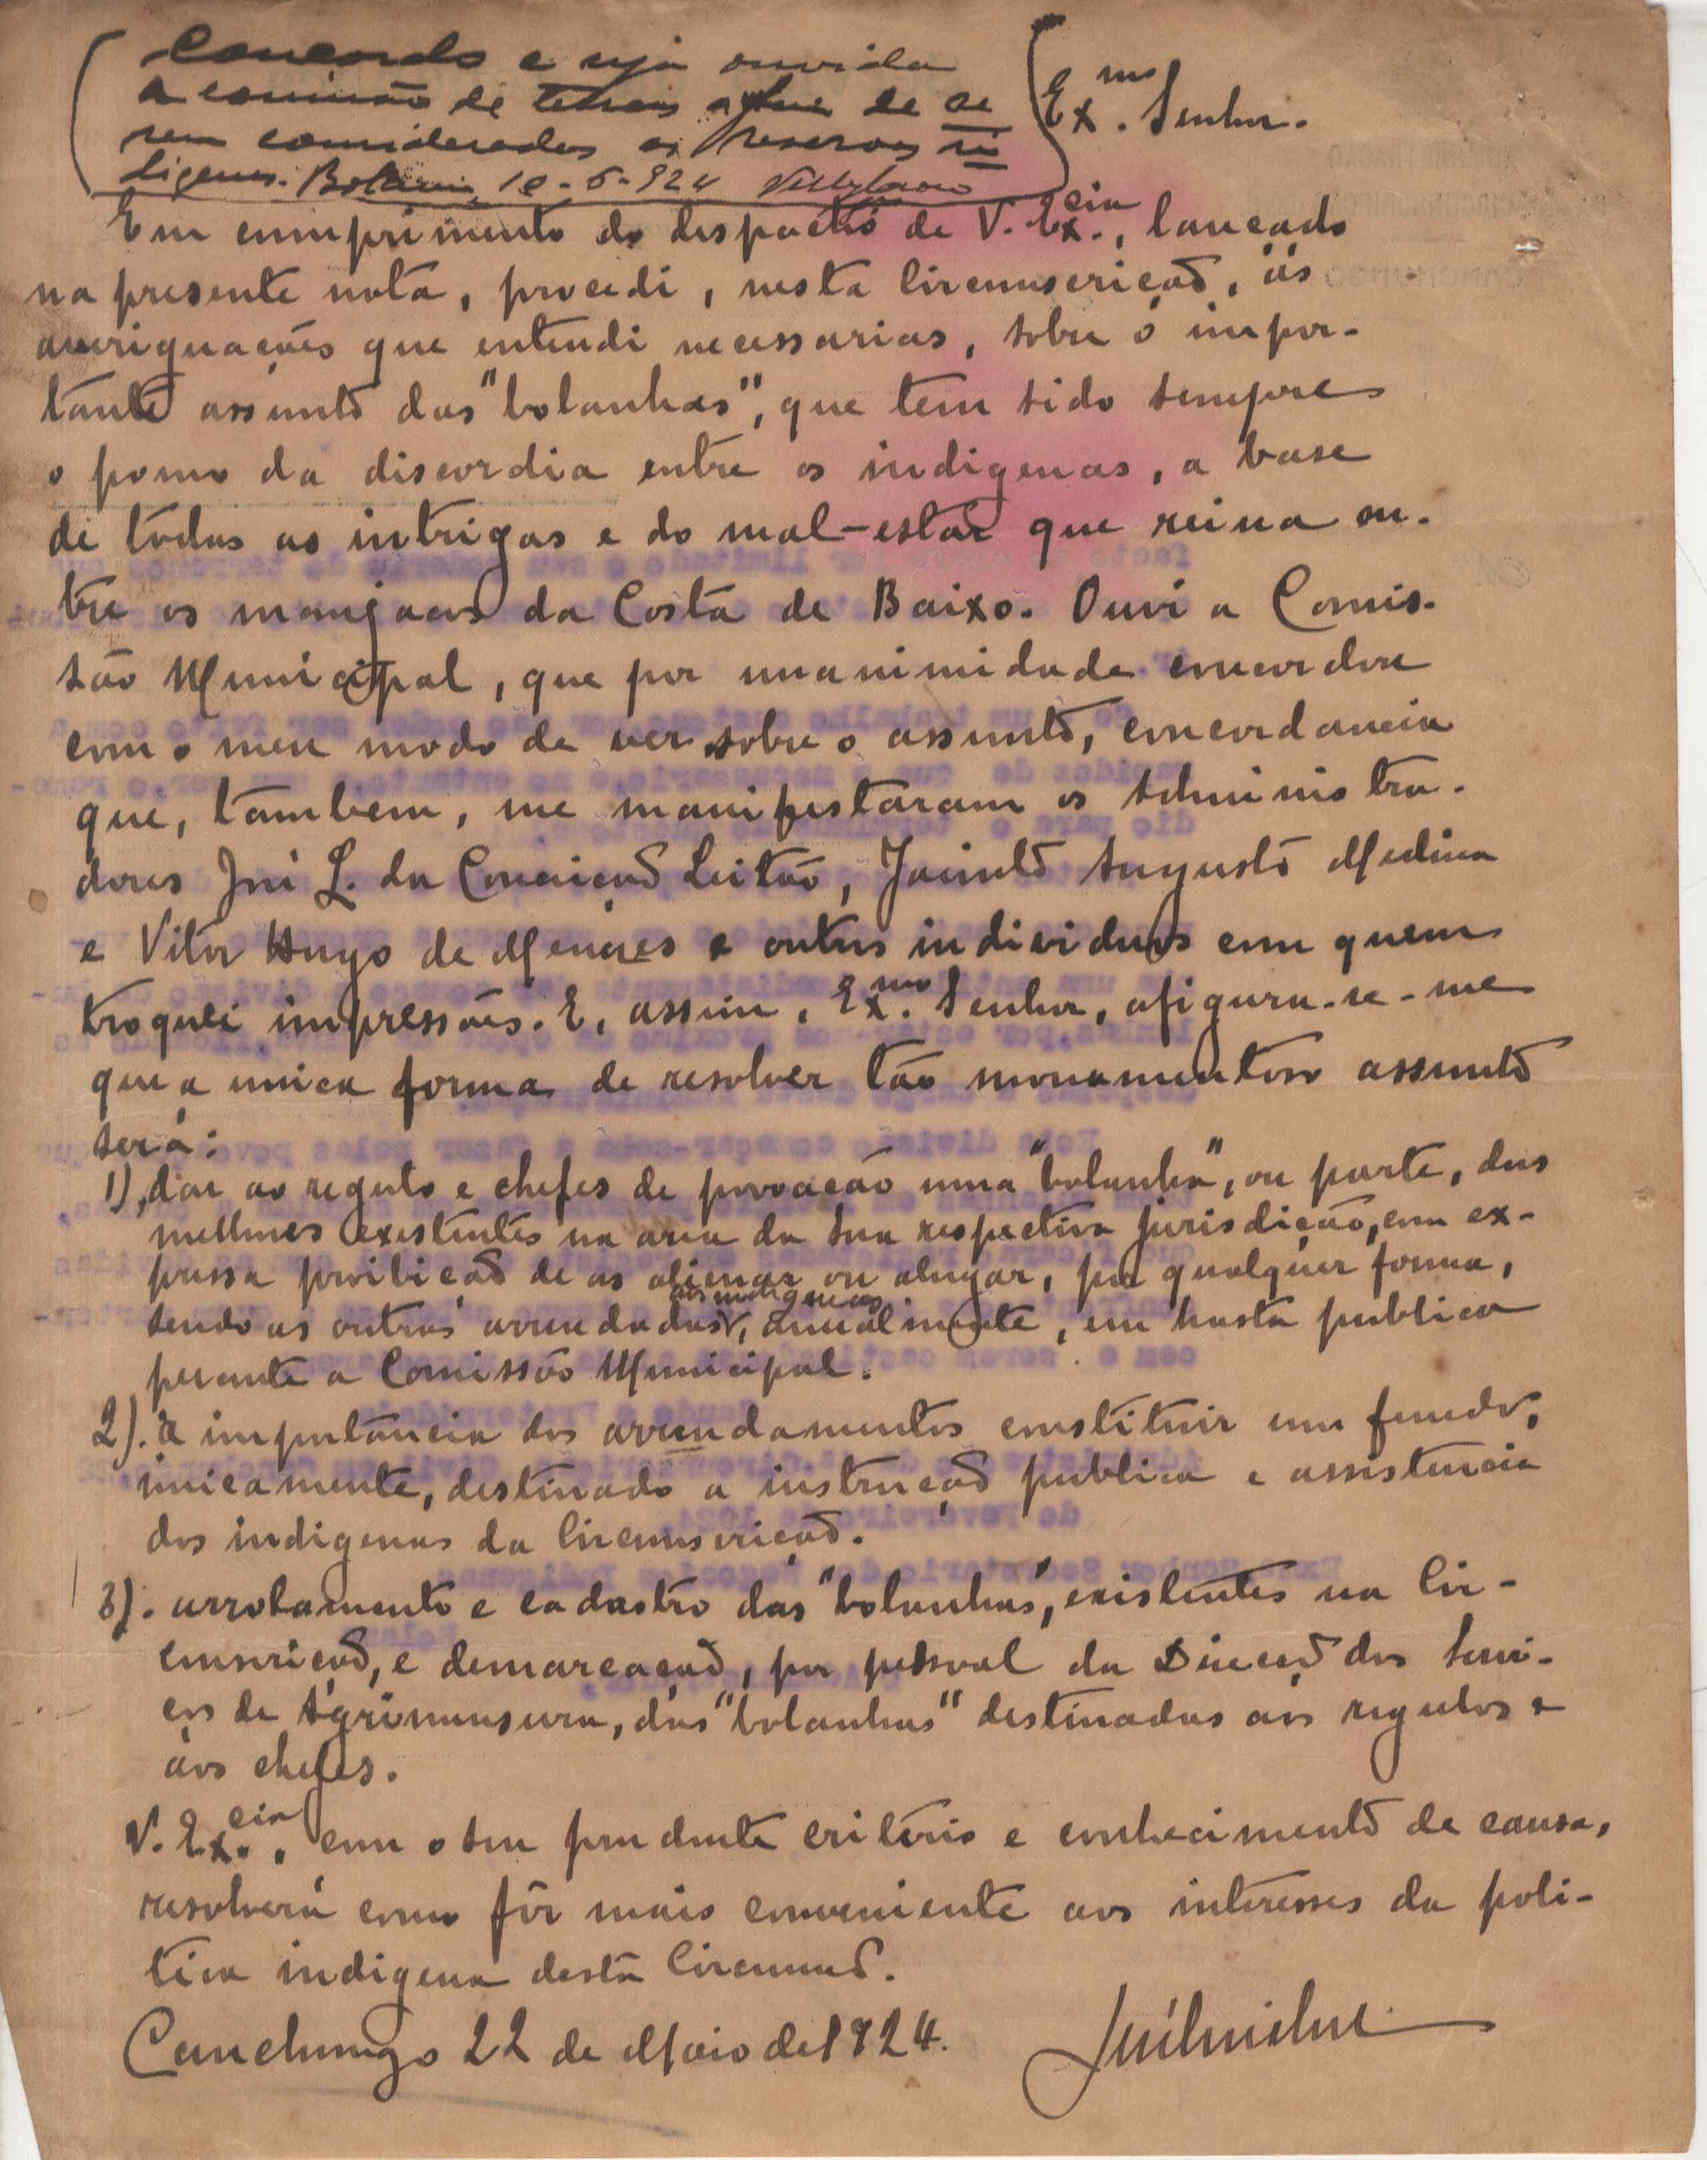 Concordo e seja ouvida
a comissão de terras afim de se
rem consideradas as reservas in
digenas. Bolama, 10-6-924
Ex.mo Senhor.
Em cumprimento do despacho de V. Ex.cia, lançado
na presente nota, procedi, nesta Circumscrição, ás
averiguações que entendi necessarias, sobre o impor-
tante assunto das "bolanhas", que tem sido sempre
o pomo da discordia entre os indigenas, a base
de todas as intrigas e do mal-estar que reina en-
tre os manjacos da Costa de Baixo. Ouvi a Comis-
são Municipal, que por unanimidade concordou
com o meu modo de ver sobre o assunto, concordancia
que, tambem, me manifestaram os Administra-
dores José L. da Conceição Leitão, Jacinto Augusto Medina
e Vitor Hugo de Menezes e outros individuos com quem
troquei impressões. E, assim, Ex.mo Senhor, afigura-se-me
que a unica forma de resolver tão monumentoso assunto
será:
1), dar ao regulo e chefes de povoação uma "bolanha", ou parte, das
melhores existentes na area da sua respectiva jurisdição, com ex-
pressa proibição de as alienar ou alugar, por qualquer forma,
sendo as outras arrendadas, aos indigenas, anualmente, em hasta publica
perante a Comissão Municipal.
2). a importância dos arrendamentos constituir um fundo,
únicamente, destinado a instrução publica e assistencia
dos indigenas da Circumscrição.
3). arrolamento e cadastro das "bolanhas", existentes na Cir-
cumscrição, e demarcação, por pessoal da Direcção dos Servi-
ços de Agrimensura, das "bolanhas" destinadas aos regulos e
aos chefes.
V. Ex.cia, com o seu prudente critério e conhecimento de causa,
resolverá como fôr mais conveniente aos interesses da poli-
tica indigena desta Circumsã.
Canchungo 22 de Maio de 1924.